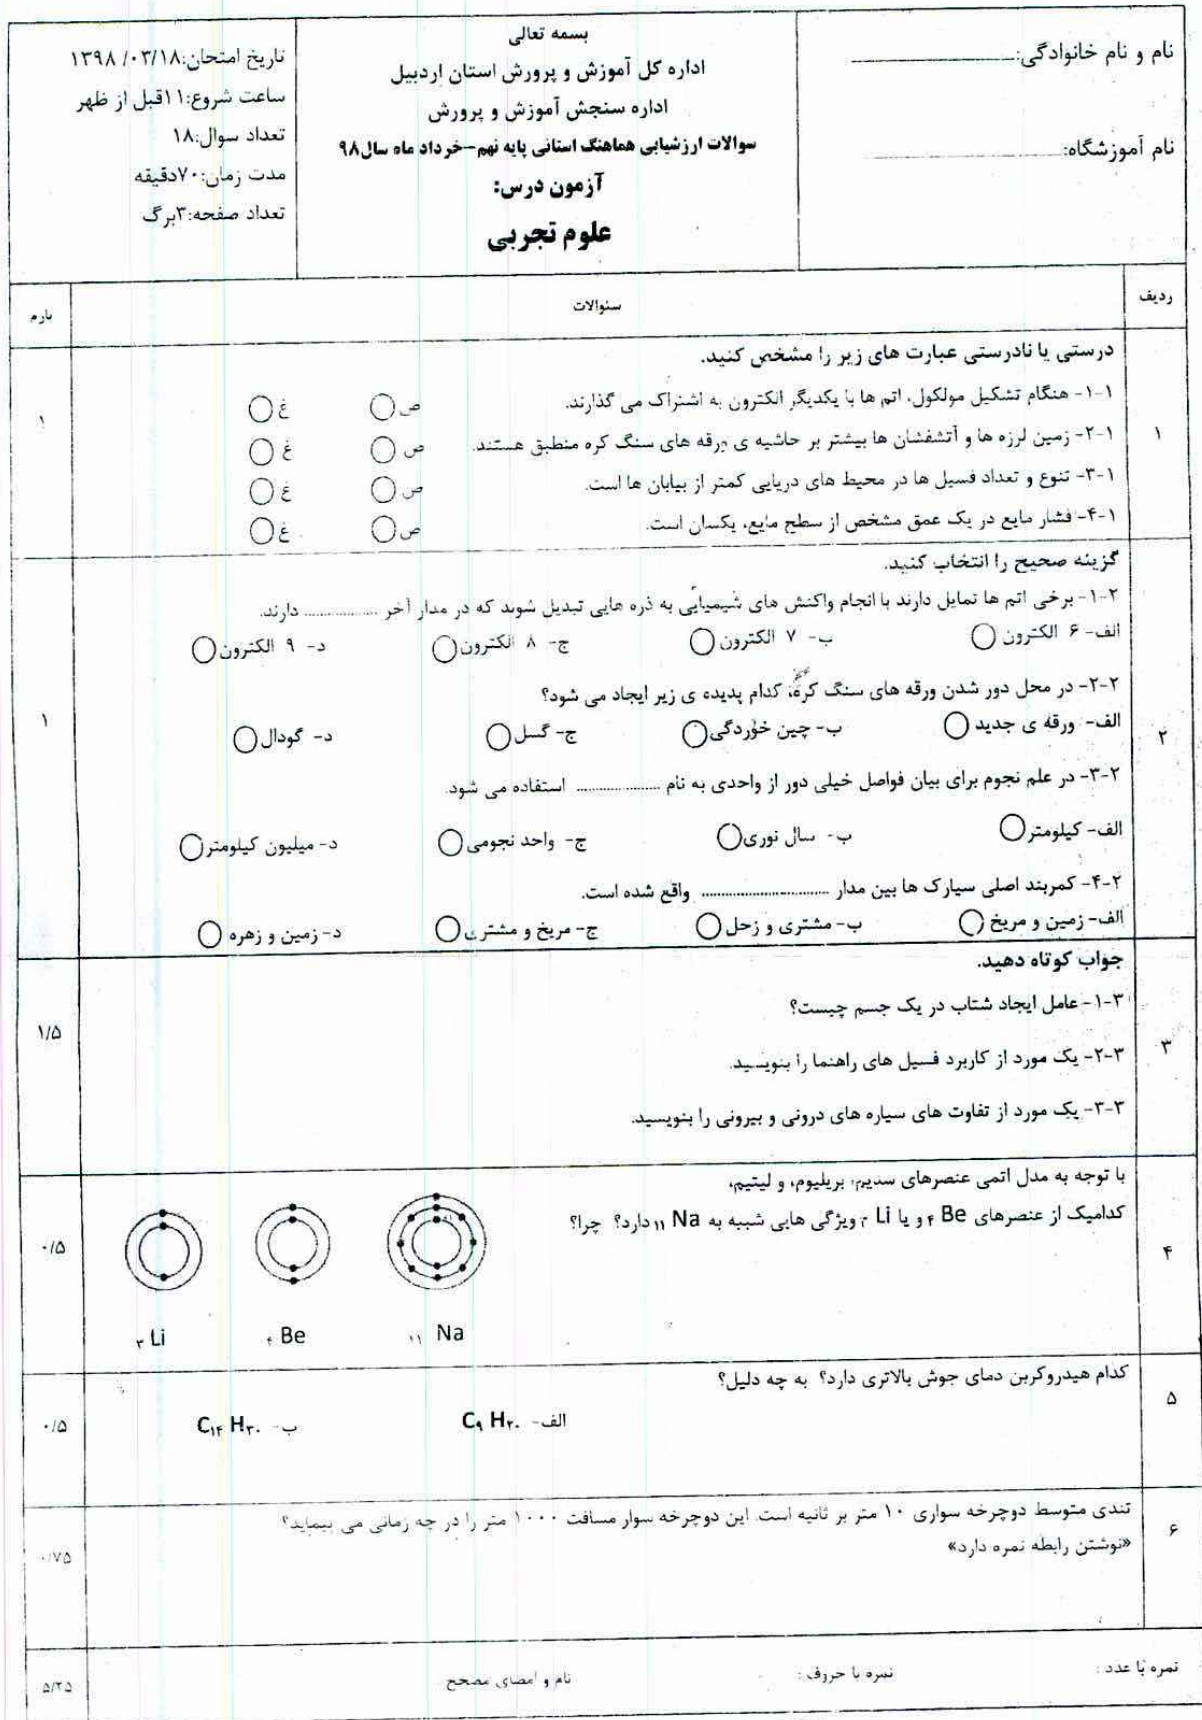 نام و نام خانوادگی:
نام آموزشگاه:
بسمه تعالی
اداره کل آموزش و پرورش استان اردبیل
اداره سنجش آموزش و پرورش
سوالات ارزشیابی هماهنگ استانی پایه نهم-خرداد ماه سال۹۸
آزمون درس:
علوم تجربی
تاریخ امتحان:۱۳۹۸/۰۳/۱۸
ساعت شروع:۱۱قبل از ظهر
تعداد سوال:۱۸
مدت زمان:۷۰دقیقه
تعداد صفحه:۳برگ
ردیف
سئوالات
بارم
۱
درستی یا نادرستی عبارت های زیر را مشخص کنید.
۱
۱-۱- هنگام تشکیل مولکول، اتم ها با یکدیگر الکترون به اشتراک می گذارند. ص غ
۲-۱- زمین لرزه ها و آتشفشان ها بیشتر بر حاشیه ی ورقه های سنگ کره منطبق هستند. ص غ
۳-۱- تنوع و تعداد فسیل ها در محیط های دریایی کمتر از بیابان ها است. ص غ
۴-۱- فشار مایع در یک عمق مشخص از سطح مایع، یکسان است. ص غ
۲
گزینه صحیح را انتخاب کنید.
۱
۱-۲- برخی اتم ها تمایل دارند با انجام واکنش های شیمیایی به ذره هایی تبدیل شوند که در مدار آخر .................. دارند.
الف- ۶ الکترون ب- ۷ الکترون ج- ۸ الکترون د- ۹ الکترون
۲-۲- در محل دور شدن ورقه های سنگ کره، کدام پدیده ی زیر ایجاد می شود؟
الف- ورقه ی جدید ب- چین خوردگی ج- گسل د- گودال
۳-۲- در علم نجوم برای بیان فواصل خیلی دور از واحدی به نام .................. استفاده می شود.
الف- کیلومتر ب- سال نوری ج- واحد نجومی د- میلیون کیلومتر
۴-۲- کمربند اصلی سیارک ها بین مدار .............................. واقع شده است.
الف- زمین و مریخ ب- مشتری و زحل ج- مریخ و مشتری د- زمین و زهره
۳
جواب کوتاه دهید.
۱/۵
۱-۳- عامل ایجاد شتاب در یک جسم چیست؟
۲-۳- یک مورد از کاربرد فسیل های راهنما را بنویسید.
۳-۳- یک مورد از تفاوت های سیاره های درونی و بیرونی را بنویسید.
۴
با توجه به مدل اتمی عنصرهای سدیم، بریلیوم، و لیتیم،
کدامیک از عنصرهای ۴ Be و یا ۳ Li ویژگی هایی شبیه به ۱۱ Na دارد؟ چرا؟
۰/۵
۳ Li ۴ Be ۱۱ Na
۵
کدام هیدروکربن دمای جوش بالاتری دارد؟ به چه دلیل؟
الف- C۹ H۲۰ ب- C۱۴ H۳۰
۰/۵
۶
تندی متوسط دوچرخه سواری ۱۰ متر بر ثانیه است. این دوچرخه سوار مسافت ۱۰۰۰ متر را در چه زمانی می پیماید؟
«نوشتن رابطه نمره دارد»
۰/۷۵
نمره با عدد : نمره با حروف : نام و امضای مصحح
۵/۲۵